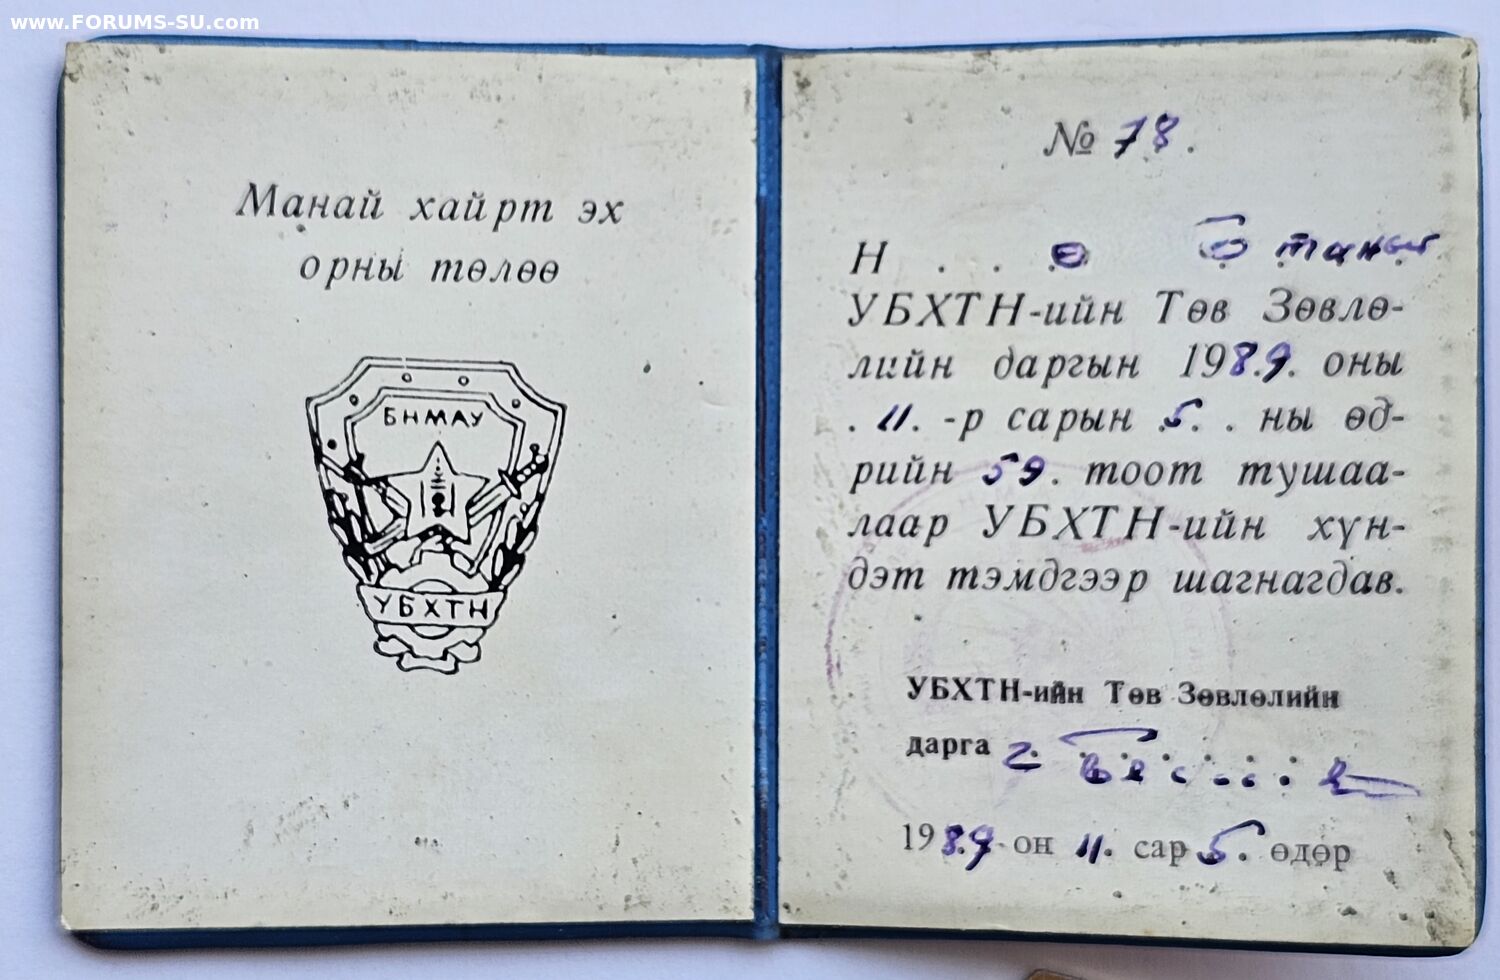 www.FORUMS-SU.com
Манай хайрт эх
орны төлөө
БНМАУ
УБХТН
№ 78.
Н . . .
УБХТН-ийн Төв Зөвлө-
лийн даргын 1989. оны
. 11. -р сарын 5. . ны өд-
рийн 59. тоот тушаа-
лаар УБХТН-ийн хүн-
дэт тэмдгээр шагнагдав.
УБХТН-ийн Төв Зөвлөлийн
дарга
1989. он 11. сар 5. өдөр